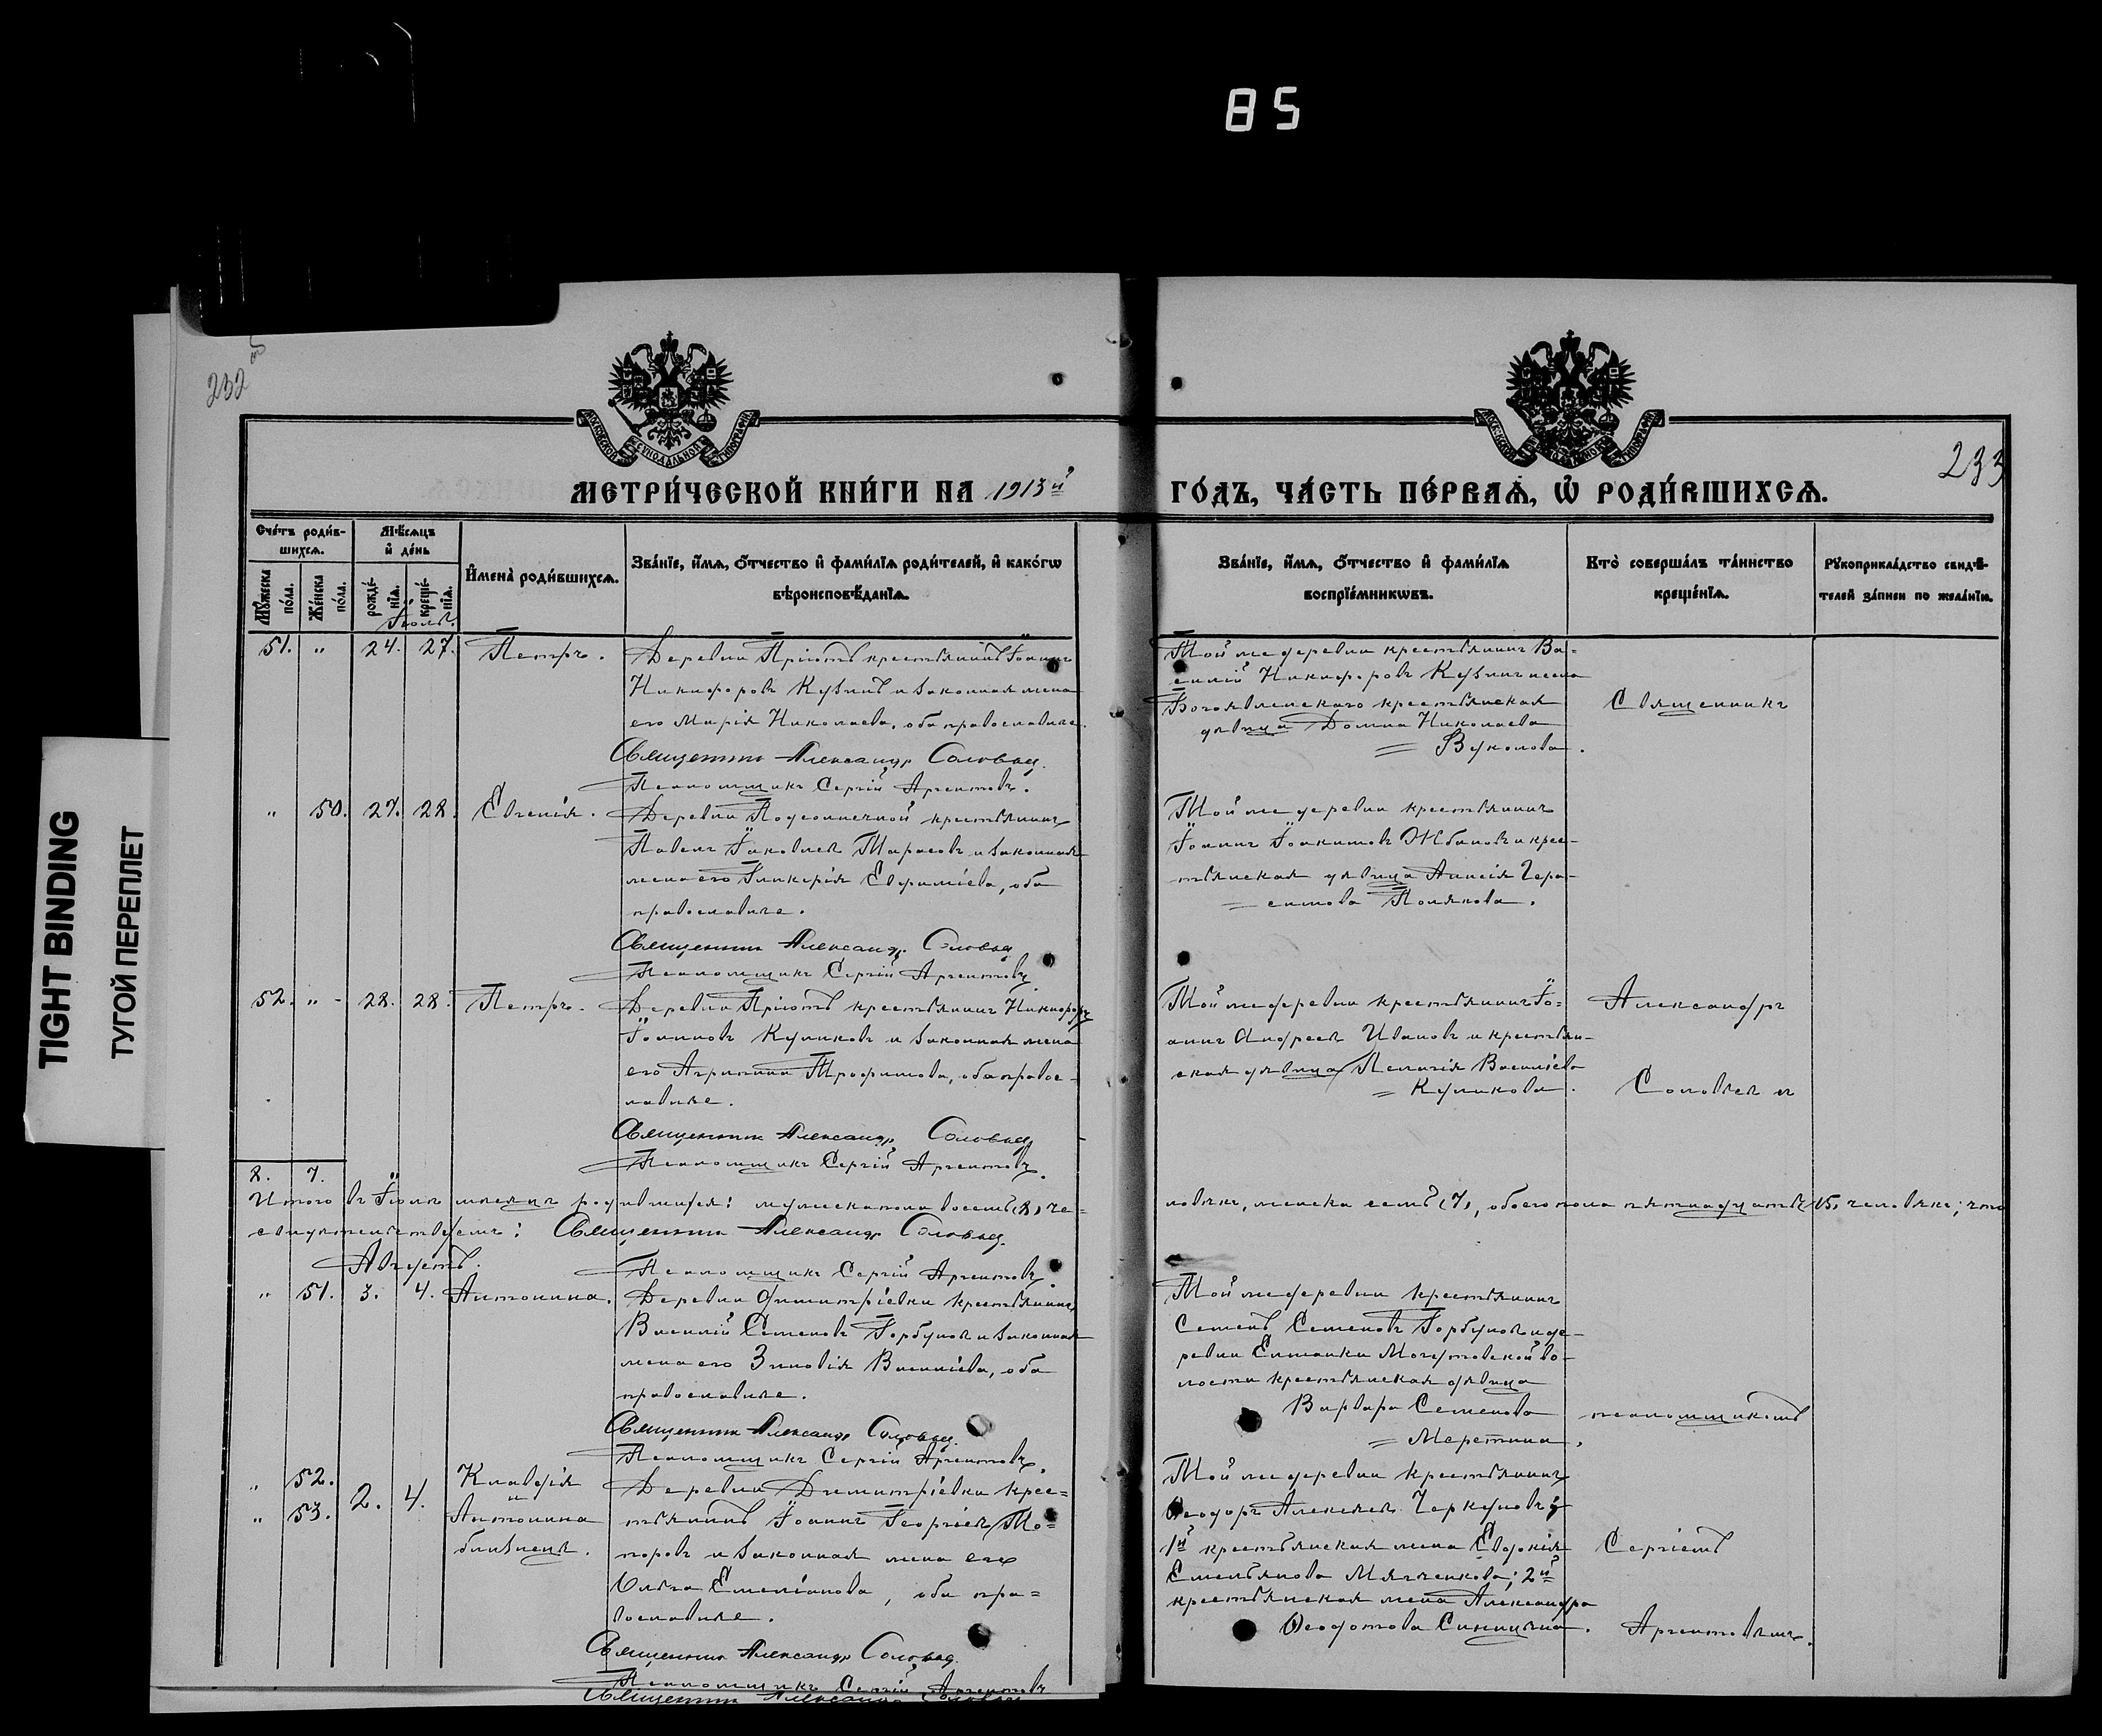 85
TIGHT BINDING
ТУГОЙ ПЕРЕПЛЕТ
232
233
МОСКОВСКОЙ СѴНОДАЛЬНОЙ ТИПОГРАФІИ
МЕТРИ́ЧЕСКОЙ КНИ́ГИ НА 1913й
ГО́ДЪ, ЧА́СТЬ ПЕ́РВАѦ, Ѡ҆ РОДИ́ВШИХСѦ.
Сче́тъ роди́в-
шихсѧ.
Мѣ́сѧцъ
и҆ де́нь
Мꙋ́жеска
по́ла.
Же́нска
по́ла.
рожде́-
нїѧ.
креще́-
нїѧ.
И҆мена̀ роди́вшихсѧ.
Зва́нїе, и҆́мѧ, ѻ҆́тчество и҆ фами́лїѧ роди́телей, и҆ како́гѡ
вѣроисповѣ́данїѧ.
Зва́нїе, и҆́мѧ, ѻ҆́тчество и҆ фами́лїѧ
воспрїе́мникѡвъ.
Кто̀ соверша́лъ та́инство
креще́нїѧ.
Рꙋкоприкла́дство свидѣ́-
телей за́писи по жела́нїю.
Іюль.
51. " 24. 27. Петръ.
Деревни Пріютъ крестьянинъ Іоаннъ
Никифоровъ Кузнинъ и законная жена
его Марія Николаева, оба православные.
Священник Александр Соловьев.
Псаломщикъ Сергій Аргентовъ.
Той же деревни крестьянинъ Ва-
силій Никифоровъ Кузнинъ и села
Богоявленскаго крестьянская
дѣвица Домна Николаева
= Вуколова.
" 50. 27. 28. Евгенія.
Деревни Подсолнечной крестьянинъ
Павелъ Іаковлев Тарасовъ и законная
жена его Гликерія Евфиміева, оба
православные.
Священник Александр Соловьев
Псаломщикъ Сергій Аргентовъ.
Той же деревни крестьянинъ
Іоаннъ Іоакимовъ Жбановъ и крес-
тьянская дѣвица Анисія Гера-
= симова Полякова.
52. " - 28. 28. Петръ.
Деревни Пріютъ крестьянинъ Никифоръ
Іоанновъ Куликовъ и законная жена
его Агрипина Трофимова, оба правос-
лавные.
Священник Александр Соловьев
Псаломщикъ Сергій Аргентовъ.
Той же деревни крестьянинъ Іо-
аннъ Андреев Ивановъ и крестьян-
ская дѣвица Пелагія Василіева
= Куликова.
Священникъ
Александръ
Соловьев и
8. 7.
Итого въ Іюлѣ мѣсяцѣ родившихся: мужеска пола восемь (8) че-
ловѣкъ, женска семь (7), обоего пола пятнадцать (15) человѣкъ; что
свидѣтельствуемъ: Священник Александр Соловьев.
Псаломщикъ Сергій Аргентовъ.
Августъ.
" 51. 3. 4. Антонина.
Деревни Димитріевки крестьянинъ
Василій Семеновъ Горбунов и законная
жена его Зиновія Василіева, оба
православные.
Священник Александр Соловьев.
Псаломщикъ Сергій Аргентовъ.
Той же деревни крестьянинъ
Семенъ Семеновъ Горбунов и де-
ревни Елшанки Могутовской во-
лости крестьянская дѣвица
Варвара Семенова
" 52. 2. 4. Клавдія
" 53. и Антонина
близнецы.
Деревни Димитріевки крес-
тьянинъ Іоаннъ Георгіев То-
поровъ и законная жена его
Ольга Емеліанова, оба пра-
вославные.
Священник Александр Соловьев.
Псаломщикъ Сергій Аргентовъ
Той же деревни крестьянинъ
Ѳеодоръ Алексѣев
1й крестьянская жена Евдокія
Емельянова Мягченкова; 2й
крестьянская жена Александра
Ѳеодотова Синицына.
псаломщикомъ
Сергіемъ
Аргентовымъ.